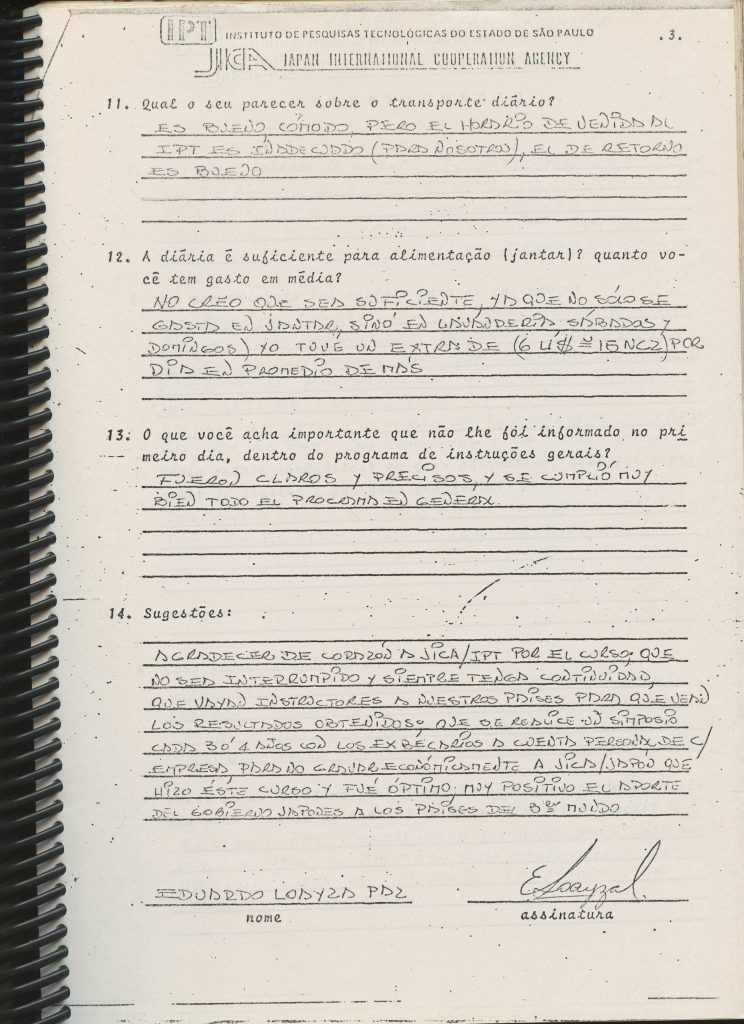 IPT INSTITUTO DE PESQUISAS TECNOLÓGICAS DO ESTADO DE SÃO PAULO .3.
JICA JAPAN INTERNATIONAL COOPERATION AGENCY
11. Qual o seu parecer sobre o transporte diário?
ES BUENO, CÓMODO, PERO EL HORARIO DE VENIDA AL
IPT ES INADECUADO (PARA NOSOTROS), EL DE RETORNO
ES BUENO
12. A diária é suficiente para alimentação (jantar)? quanto vo-
cê tem gasto em média?
NO CREO QUE SEA SUFICIENTE, YA QUE NO SÓLO SE
GASTA EN JANTAR, SINÓ EN LAVANDERIA SÁBADOS Y
DOMINGOS) YO TUVÉ UN EXTRA DE (6 U$ ≅ 15 NCZ) POR
DIA EN PROMEDIO DE MÁS
13. O que você acha importante que não lhe foi informado no pri
meiro dia, dentro do programa de instruções gerais?
FUERON CLAROS Y PRECISOS, Y SE CUMPLIÓ MUY
BIEN TODO EL PROGRAMA EN GENERAL.
14. Sugestões:
AGRADECER DE CORAZÓN A JICA/IPT POR EL CURSO; QUE
NO SEA INTERRUMPIDO Y SIEMPRE TENGA CONTINUIDAD,
QUE VAYAN INSTRUCTORES A NUESTROS PAÍSES PARA QUE VEAN
LOS RESULTADOS OBTENIDOS; QUE SE REALICE UN SIMPOSIO
CADA 3 Ó 4 AÑOS CON LOS EXBÉCARIOS A CUENTA PERSONAL DE C/
EMPRESA, PARA NO GRAVAR ECONÓMICAMENTE A JICA/JAPÓN QUE
HIZO ÉSTE CURSO Y FUÉ ÓPTIMO; MUY POSITIVO EL APORTE
DEL GOBIERNO JAPONES A LOS PAÍSES DEL 3er MUNDO
EDUARDO LOAYZA PAZ E. Loayza L.
nome assinatura